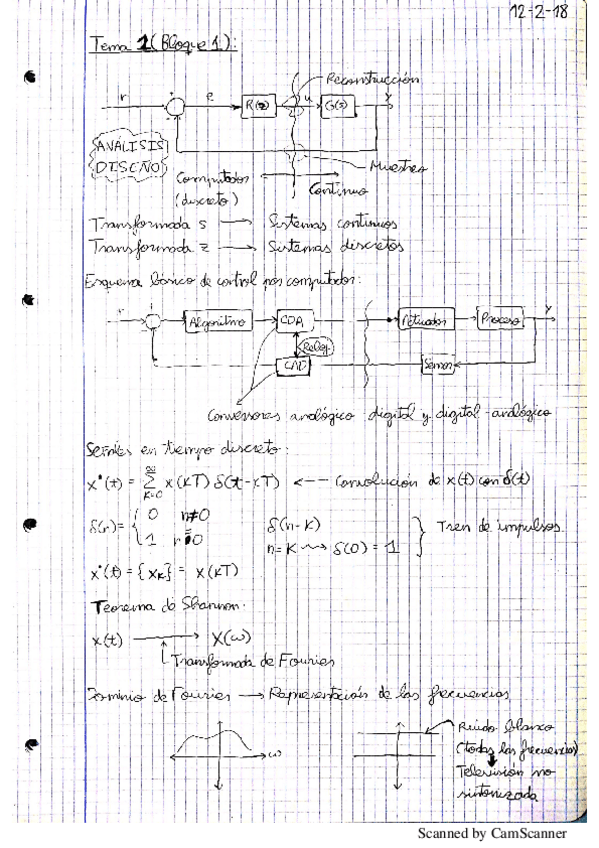 12-2-18
Tema 1 (Bloque 1):
Reconstrucción
r e R(z) u G(s) y
ANÁLISIS
DISEÑO
Muestreo
Computador
(discreto)
Continuo
Transformada s → Sistemas continuos
Transformada z → Sistemas discretos
Esquema básico de control por computador:
r Algoritmo CDA Actuador Proceso y
Reloj
CAD Sensor
Conversores analógico-digital y digital-analógico
Señales en tiempo discreto:
x*(t) = ∞ Σ K=0 x(KT) δ(t-KT) <-- Convolución de x(t) con δ(t)
δ(n) = { 0 n≠0
1 n=0
δ(n-K)
n=K ⇝ δ(0) = 1
} Tren de impulsos
x*(t) = {xK} = x(KT)
Teorema de Shannon:
x(t) → X(ω)
Transformada de Fourier
Dominio de Fourier → Representación de las frecuencias
ω
Ruido blanco
(todas las frecuencias)
Televisión no
sintonizada
Scanned by CamScanner